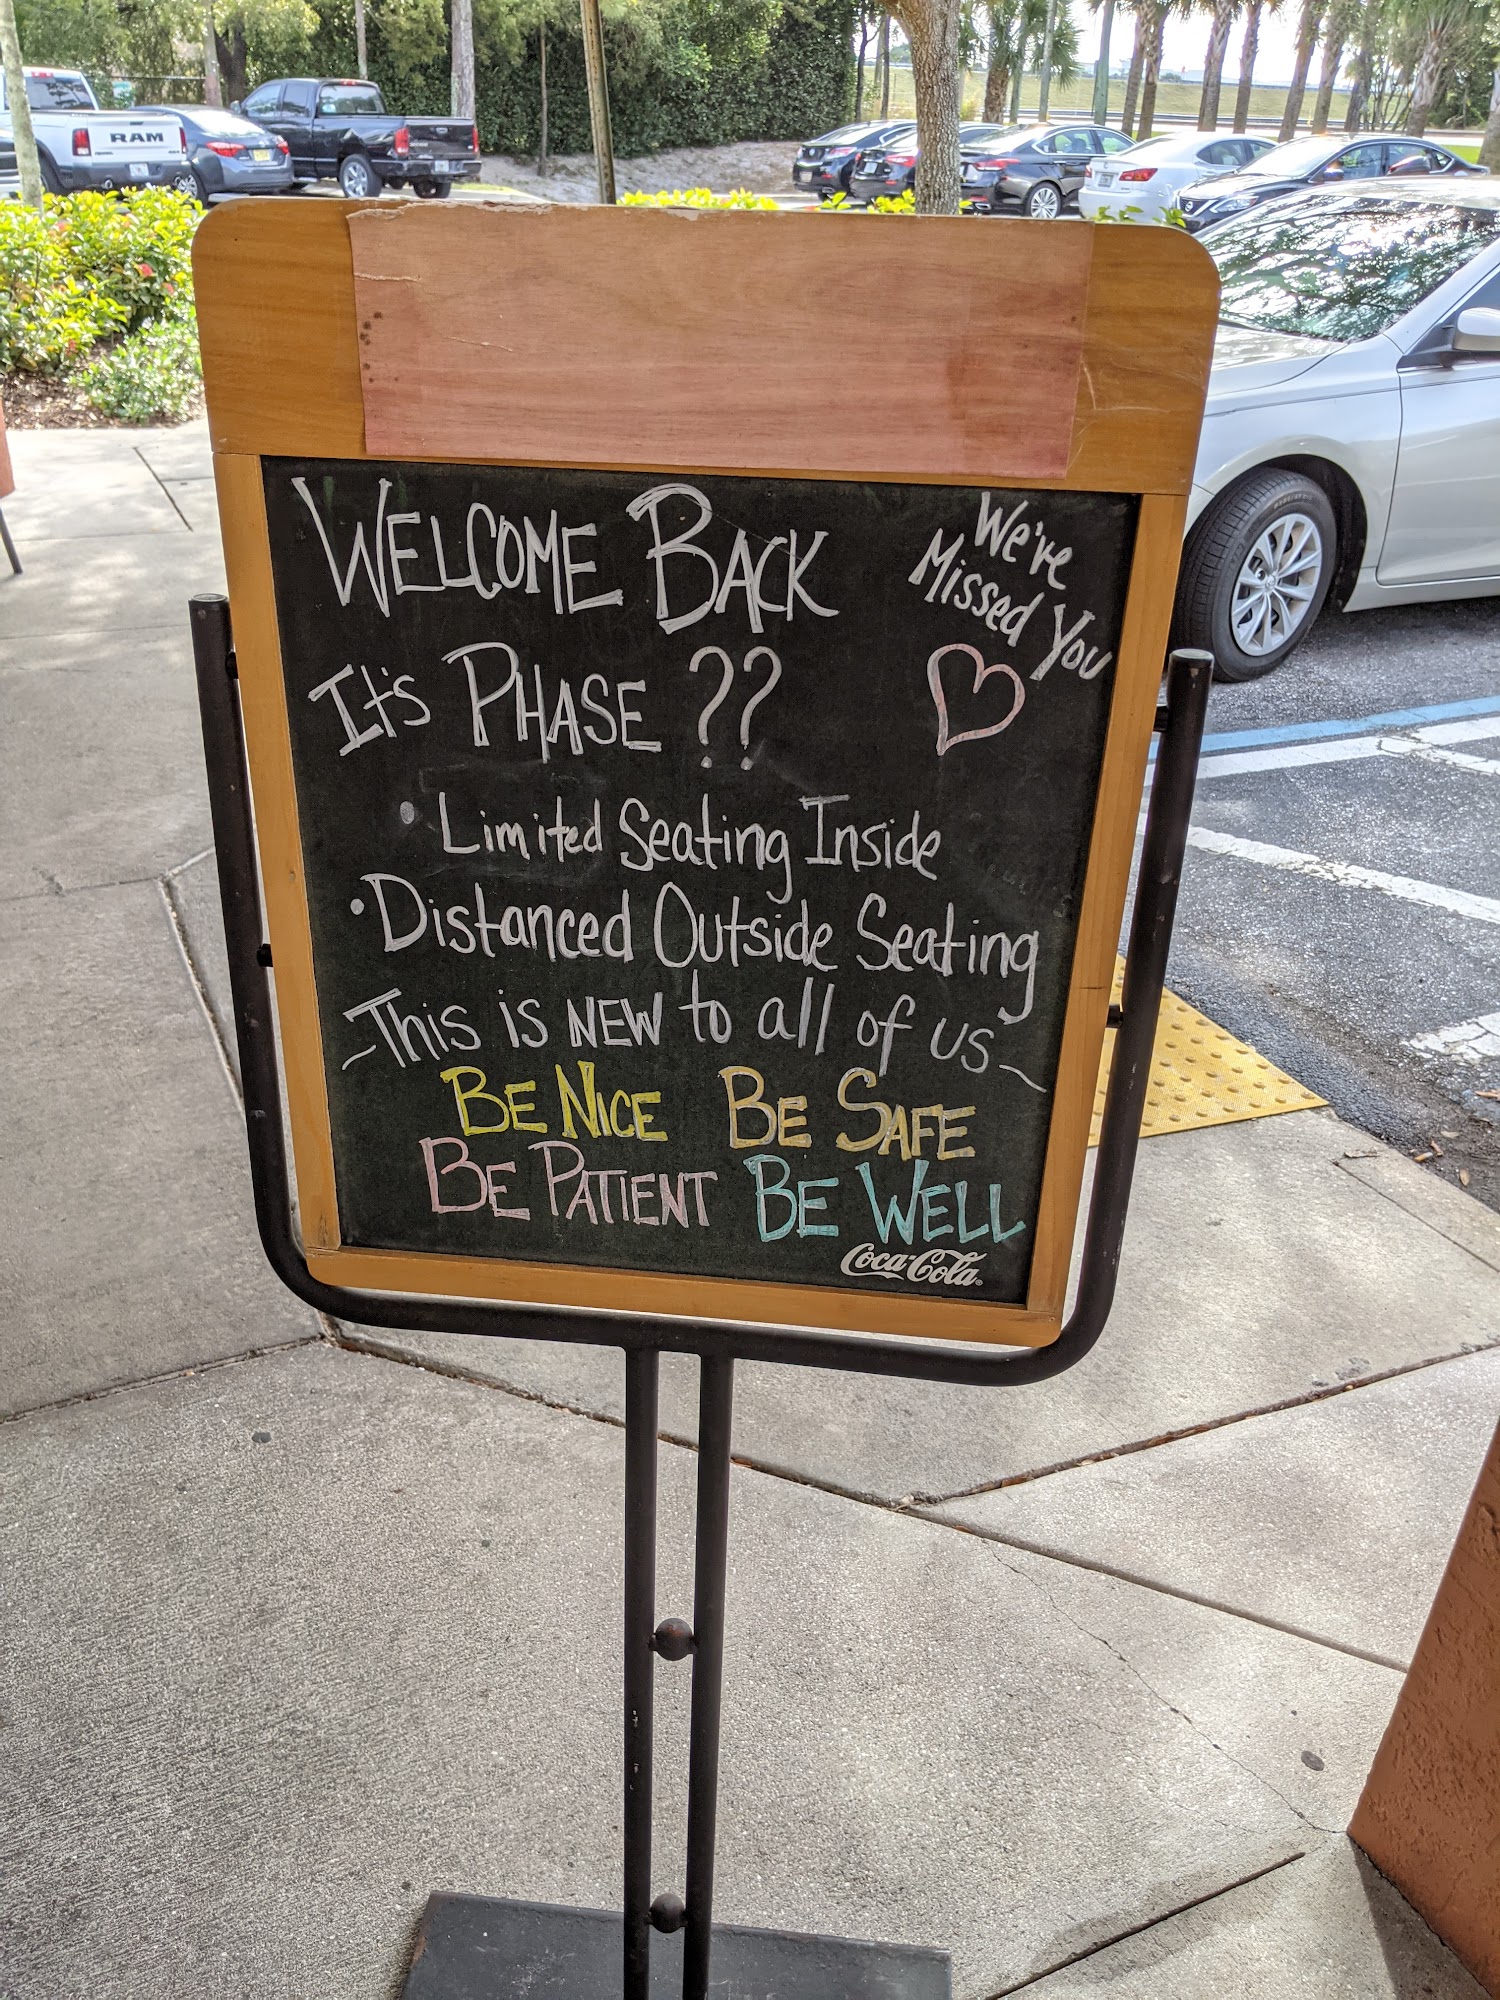 RAM
WELCOME BACK
We're
Missed You
It's PHASE ??
• Limited Seating Inside
• Distanced Outside Seating
~This is NEW to all of us~
BE NICE BE SAFE
BE PATIENT BE WELL
Coca-Cola